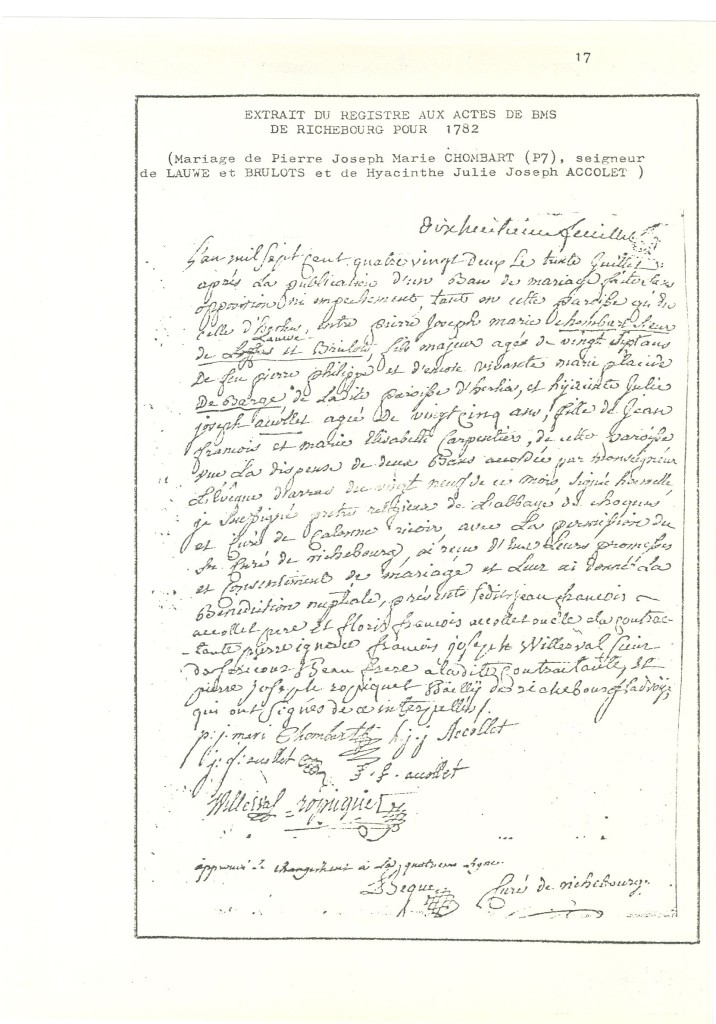 17
EXTRAIT DU REGISTRE AUX ACTES DE BMS
DE RICHEBOURG POUR 1782
(Mariage de Pierre Joseph Marie CHOMBART (P7), seigneur
de LAUWE et BRULOTS et de Hyacinthe Julie Joseph ACCOLET )
dixhuitieme feuillet
L'an mil sept cent quatre vingt deux Le trente Juillet
après La publication d'un Ban de mariage faite sans
opposition ni empechement, tant en cette paroisse qu'en
celle d', entre pierre Joseph marie chombart sieur
Lauwe
de et Brulots, fils majeur agée de vingt sept ans
De feu pierre philippe et d'encore vivante marie placide
De Barge de Ladite paroisse d'herlies, et hyacinte Julie
joseph accollet agée De vingt cinq ans, fille de Jean
francois et marie Elisabeth Carpentier, de cette paroisse
vue La dispense de deux Bans accordée par monseigneur
L'Evêque d'arras du vingt neuf de ce mois, signée
je soussigné pretre religieux de L'abbaye de choques
et Curé de Calonne ricoir avec La permission du
Sr Curé de richebourg, ai reçu d'Eux Leurs promesses
et Consentement de mariage et Leur ai donné La
Benediction nuptiale, présents Ledit jean francois
accollet pere et floris francois accollet oncle a la contrac-
-tante pierre ignace francois joseph Willerval sieur
Beau frere a la dite contractante, et
pierre joseph ropiquet Bailly de richebourg Ladvoué
qui ont signés de ce interpellés.
p: j. mari Chombart h. j. j Accollet
j. f. accollet f. f. accollet
Willerval ropiquet
approuvé le changement à La quatrieme ligne
Beque Curé de richebourg.